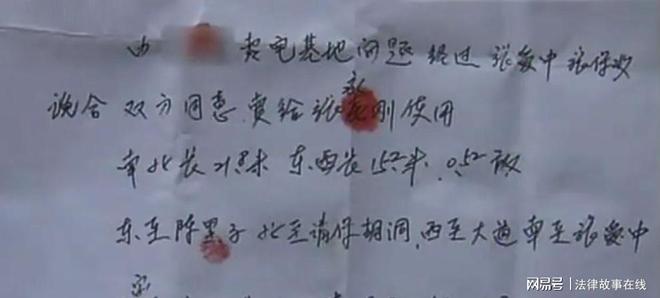 由 卖宅基地问题 经过 张爱中 张保
说合 双方同意 卖给张永刚使用
南北长21.8米 东西长15.2米. 0.52亩
东至陈黑子 北至请保胡洞, 西至大道 南至张爱中
网易号 | 法律故事在线